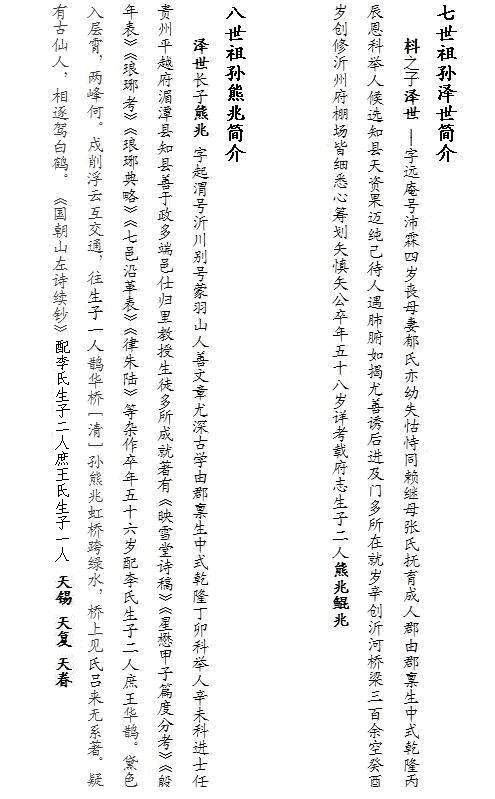 七世祖孙泽世简介
枓之子泽世——字远庵号沛霖四岁丧母妻郁氏亦幼失怙恃同赖继母张氏抚育成人郡由郡禀生中式乾隆丙
辰恩科举人候选知县天资果迈纯己待人遇肺腑如揭尤善诱后进及门多所在就岁辛创沂河桥梁三百余空癸酉
岁创修沂州府棚场皆细悉心筹划矢慎矢公卒年五十八岁详考载府志生子二人熊兆鲲兆
八世祖孙熊兆简介
泽世长子熊兆 字起渭号沂川别号蒙羽山人善文章尤深古学由郡禀生中式乾隆丁卯科举人辛未科进士任
贵州平越府湄潭县知县善于政多端邑仕归里教授生徒多所成就著有《映雪堂诗稿》《星懋甲子篇度分考》《殷
年表》《琅琊考》《琅琊典略》《七邑沿革表》《律朱陆》等杂作卒年五十六岁配李氏生子二人庶王华鹊。黛色
入层霄，两峰何。戍削浮云互交通，往生子一人鹊华桥［清］孙熊兆虹桥跨绿水，桥上见氏吕来无系著。疑
有古仙人，相逐驾白鹤。 《国朝山左诗续钞》配李氏生子二人庶王氏生子一人 天锡 天复 天眷